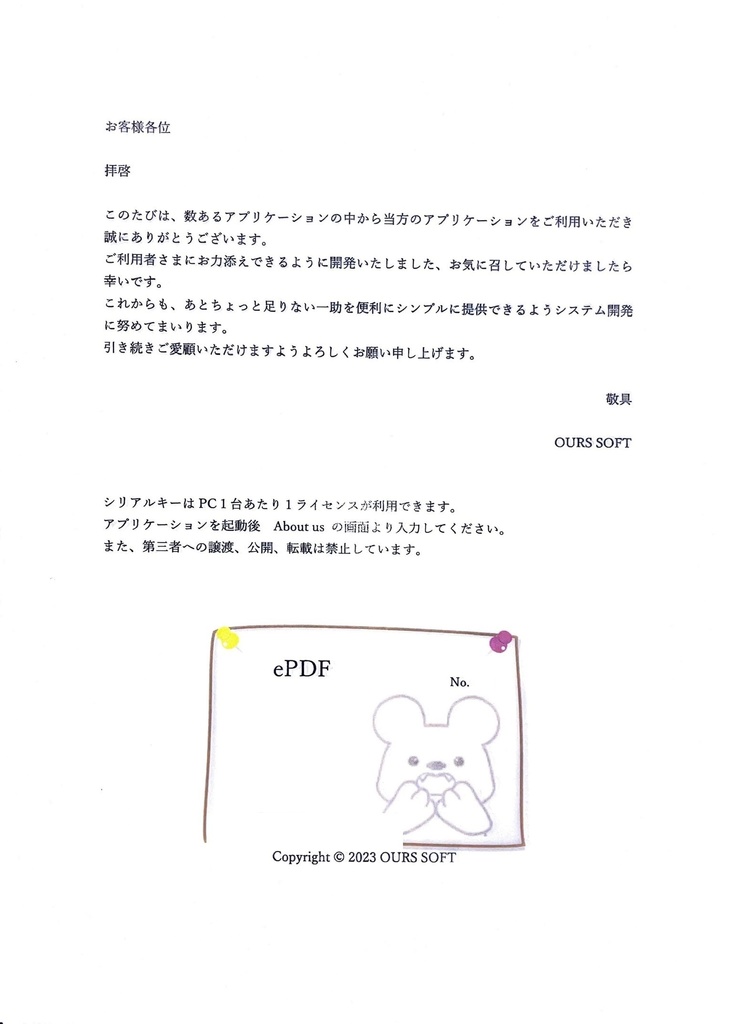 お客様各位
拝啓
このたびは、数あるアプリケーションの中から当方のアプリケーションをご利用いただき
誠にありがとうございます。
ご利用者さまにお力添えできるように開発いたしました、お気に召していただけましたら
幸いです。
これからも、あとちょっと足りない一助を便利にシンプルに提供できるようシステム開発
に努めてまいります。
引き続きご愛顧いただけますようよろしくお願い申し上げます。
敬具
OURS SOFT
シリアルキーは PC１台あたり１ライセンスが利用できます。
アプリケーションを起動後　About us の画面より入力してください。
また、第三者への譲渡、公開、転載は禁止しています。
ePDF
No.
Copyright © 2023 OURS SOFT